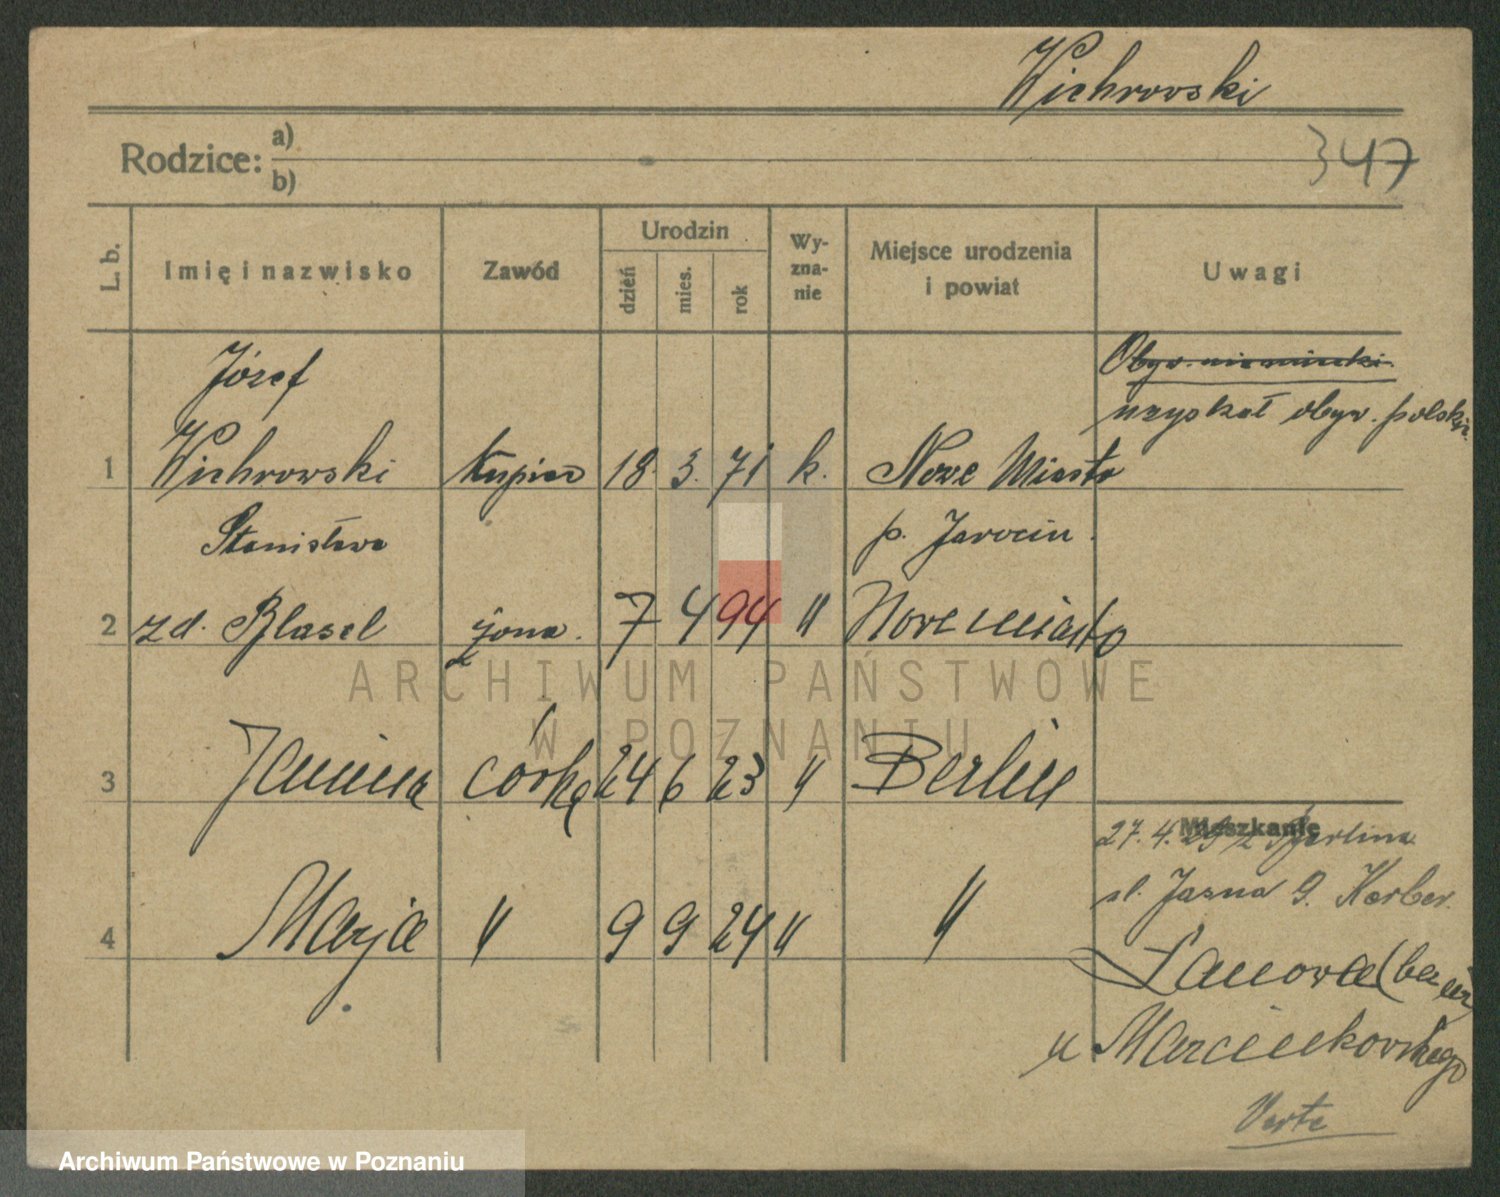 Wichrowski
347
Rodzice: a)
b)
L. b.
Imię i nazwisko
Zawód
Urodzin
dzień
mies.
rok
Wy-
zna-
nie
Miejsce urodzenia
i powiat
Uwagi
Józef
Obyw. niemiecki
uzyskał obyw. polskie
1 Wichrowski kupiec 18. 3. 71 k. Nowe Miasto
Stanisława p. Jarocin
2 zd. Blasel żona. 7 4 94 " Nowe miasto
ARCHIWUM PAŃSTWOWE
W POZNANIU
3 Janina córka 24 6 23 " Berlin
Mieszkanie
27. 4. z Berlina
ul. Jasna 9. Kerber.
4 Marja " 9 9 24 " "
u Marcinkowskiego
Verte
Archiwum Państwowe w Poznaniu